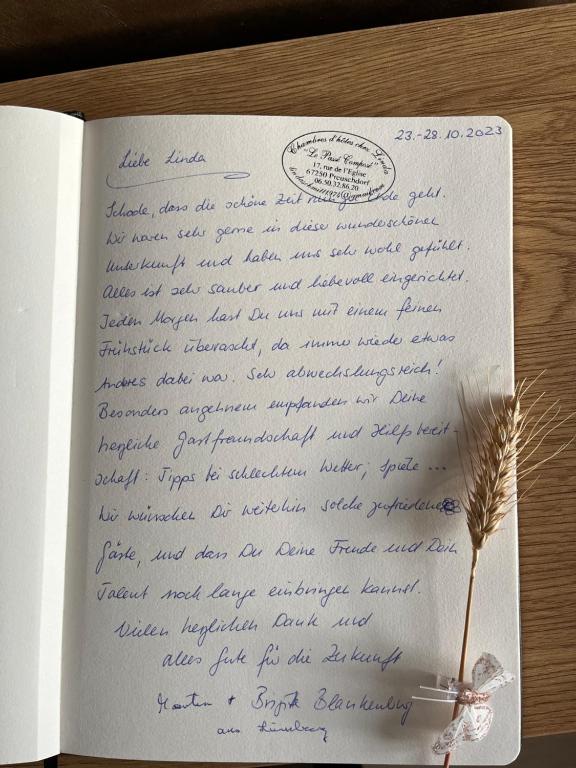 23.-28.10.2023
Liebe Linda
Chambres d'hôtes chez Linda
"Le Passé Composé"
17, rue de l'Eglise
67250 Preuschdorf
06.50.32.86.20
Schade, dass die schöne Zeit Ende geht.
Wir waren sehr gerne in dieser wunderschönen
Unterkunft und haben uns sehr wohl gefühlt.
Alles ist sehr sauber und liebevoll eingerichtet.
Jeden Morgen hast Du uns mit einem feinen
Frühstück überrascht, da immer wieder etwas
Anderes dabei war. Sehr abwechslungsreich!
Besonders angenehm empfanden wir Deine
herzliche Gastfreundschaft und Hilfsbereit-
schaft: Tipps bei schlechtem Wetter; Spiele ...
Wir wünschen Dir weiterhin solche zufriedene
Gäste, und dass Du Deine Freude und Dein
Talent noch lange einbringen kannst.
Vielen herzlichen Dank und
alles Gute für die Zukunft
+ Brigitte Blankenburg
aus